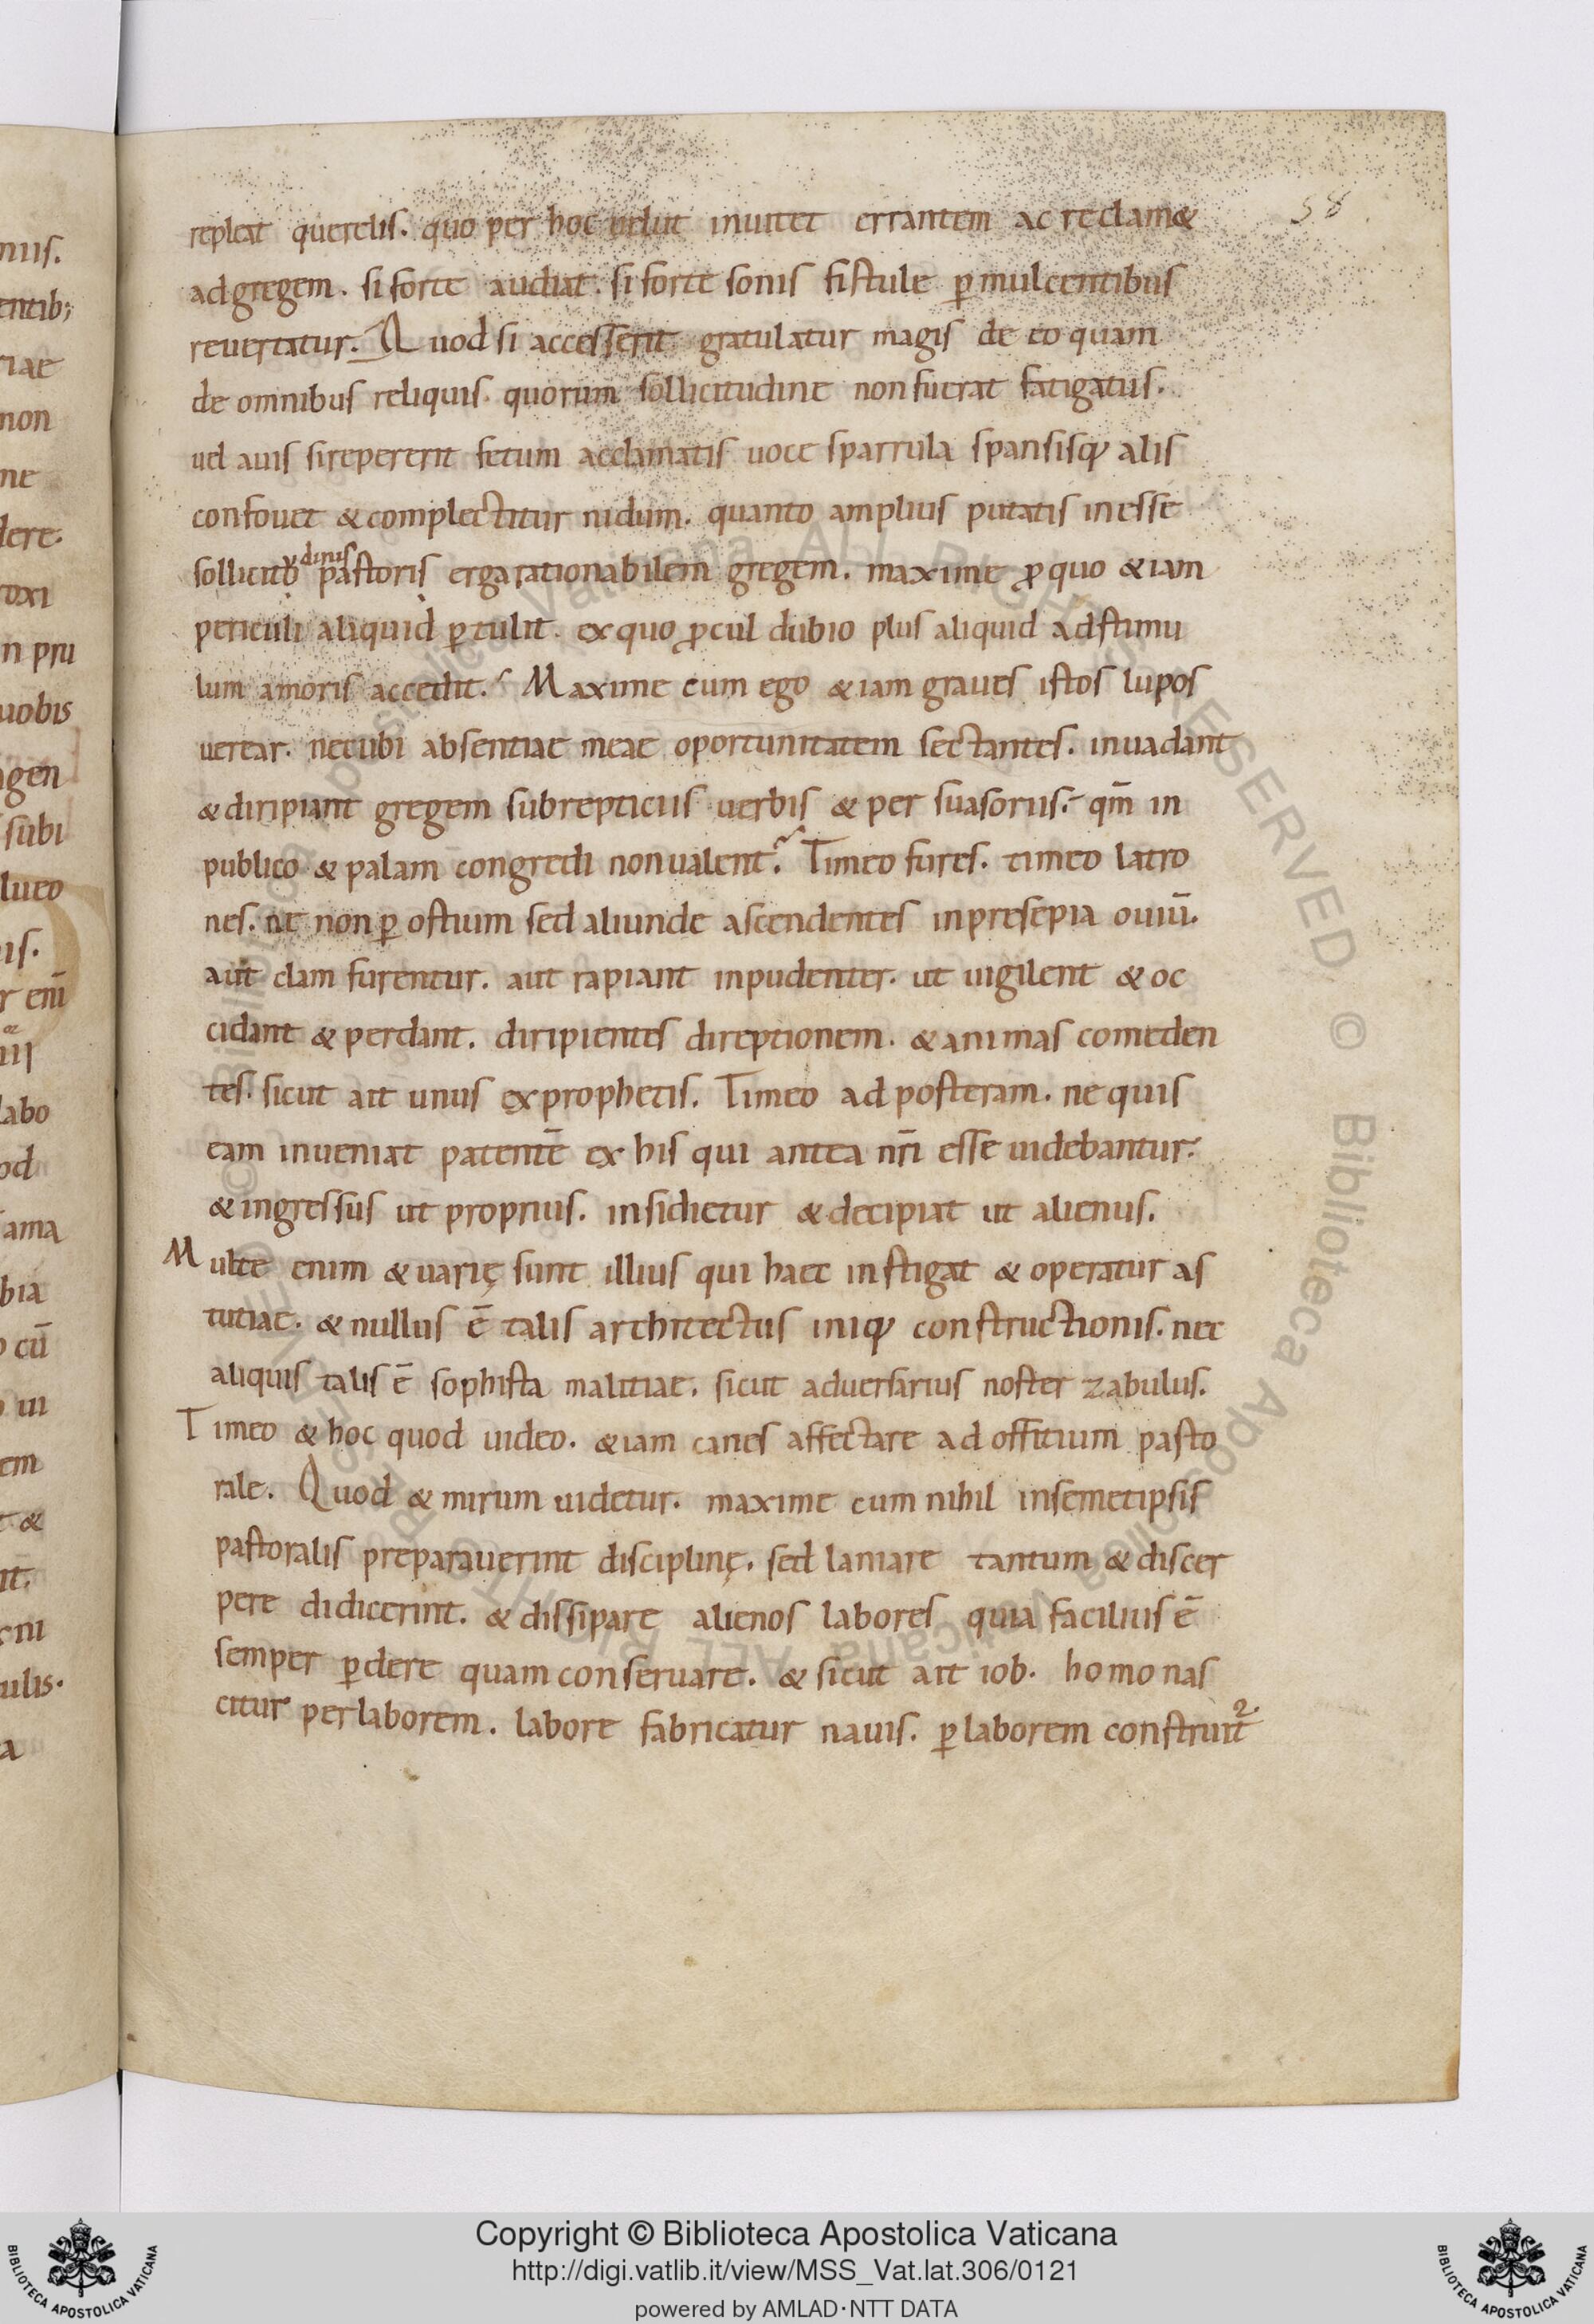 repleat querelis. quo per hoc uelut inuitet errantem ac reclam&
ad gregem. si forte audiat. si forte sonis fistule p̱mulcentibus
reuertatur. Quod si accesserit gratulatur magis de eo quam
de omnibus reliquis. quorum sollicitudine non fuerat fatigatus.
uel auis si repererit fetum acclamatis uoce sparrula spansisq; alis
confouet & complectitur nidum. quanto amplius putatis inesse
sollicitudinis pastoris erga rationabilem gregem. maxime ꝓ quo &iam
periculi aliquid ꝑtulit. ex quo ꝓcul dubio plus aliquid ad stimu
lum amoris accedit. Maxime cum ego &iam graues istos lupos
uerear. necubi absentiae meae oportunitatem sectantes. inuadant
& diripiant gregem subrepticiis uerbis & per suasoriis. qm̄ in
publico & palam congredi non ualent. Timeo fures. timeo latro
nes. ne non ꝑ ostium sed aliunde ascendentes in presepia ouiū.
aut clam furentur. aut rapiant inpudenter. ut uigilent & oc
cidant & perdant. diripientes direptionem. & animas comeden
tes. sicut ait unus ex prophetis. Timeo ad posteram. ne quis
eam inueniat patentē ex his qui antea nr̄i esse uidebantur.
& ingressus ut proprius. insidietur & decipiat ut alienus.
Multe enim & uarię sunt illius qui haec instigat & operatur as
tutiae. & nullus ē talis architectus iniq; constructionis. nec
aliquis talis ē sophista malitiae. sicut aduersarius noster zabulus.
Timeo & hoc quod uideo. &iam canes affectare ad offitium pasto
rale. Quod & mirum uidetur. maxime cum nihil in semetipsis
pastoralis preparauerint disciplinę. sed laniare tantum & discer
pere didicerint. & dissipare alienos labores quia facilius ē
semper ꝑdere quam conseruare. & sicut ait iob. homo nas
citur per laborem. labore fabricatur nauis. ꝑ laborem construit²
58
Copyright © Biblioteca Apostolica Vaticana
http://digi.vatlib.it/view/MSS_Vat.lat.306/0121
powered by AMLAD·NTT DATA